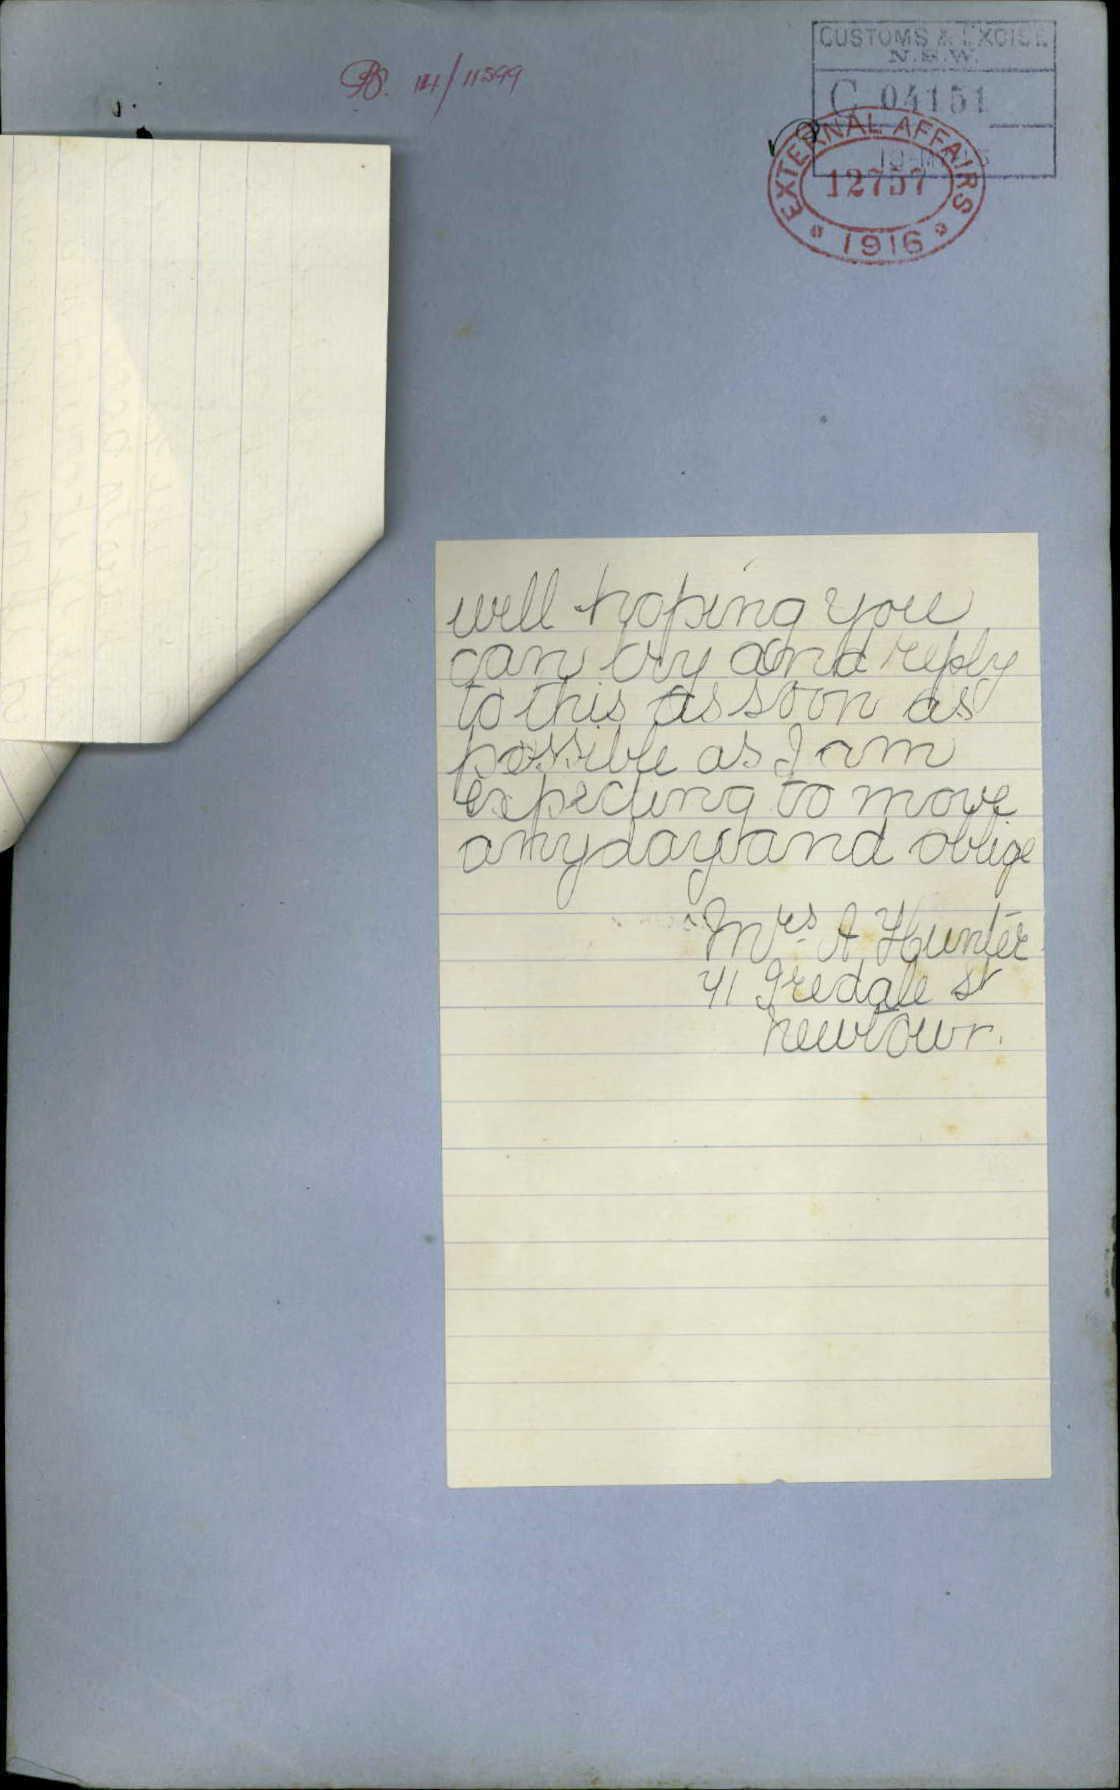 14/11599
CUSTOMS & EXCISE
N.S.W.
C 04151
EXTERNAL AFFAIRS
12757
1916
well hoping you
can try and reply
to this as soon as
possible as I am
expecting to move
any day and oblige
Mrs A Hunter
41 Iredale St
Newtown.